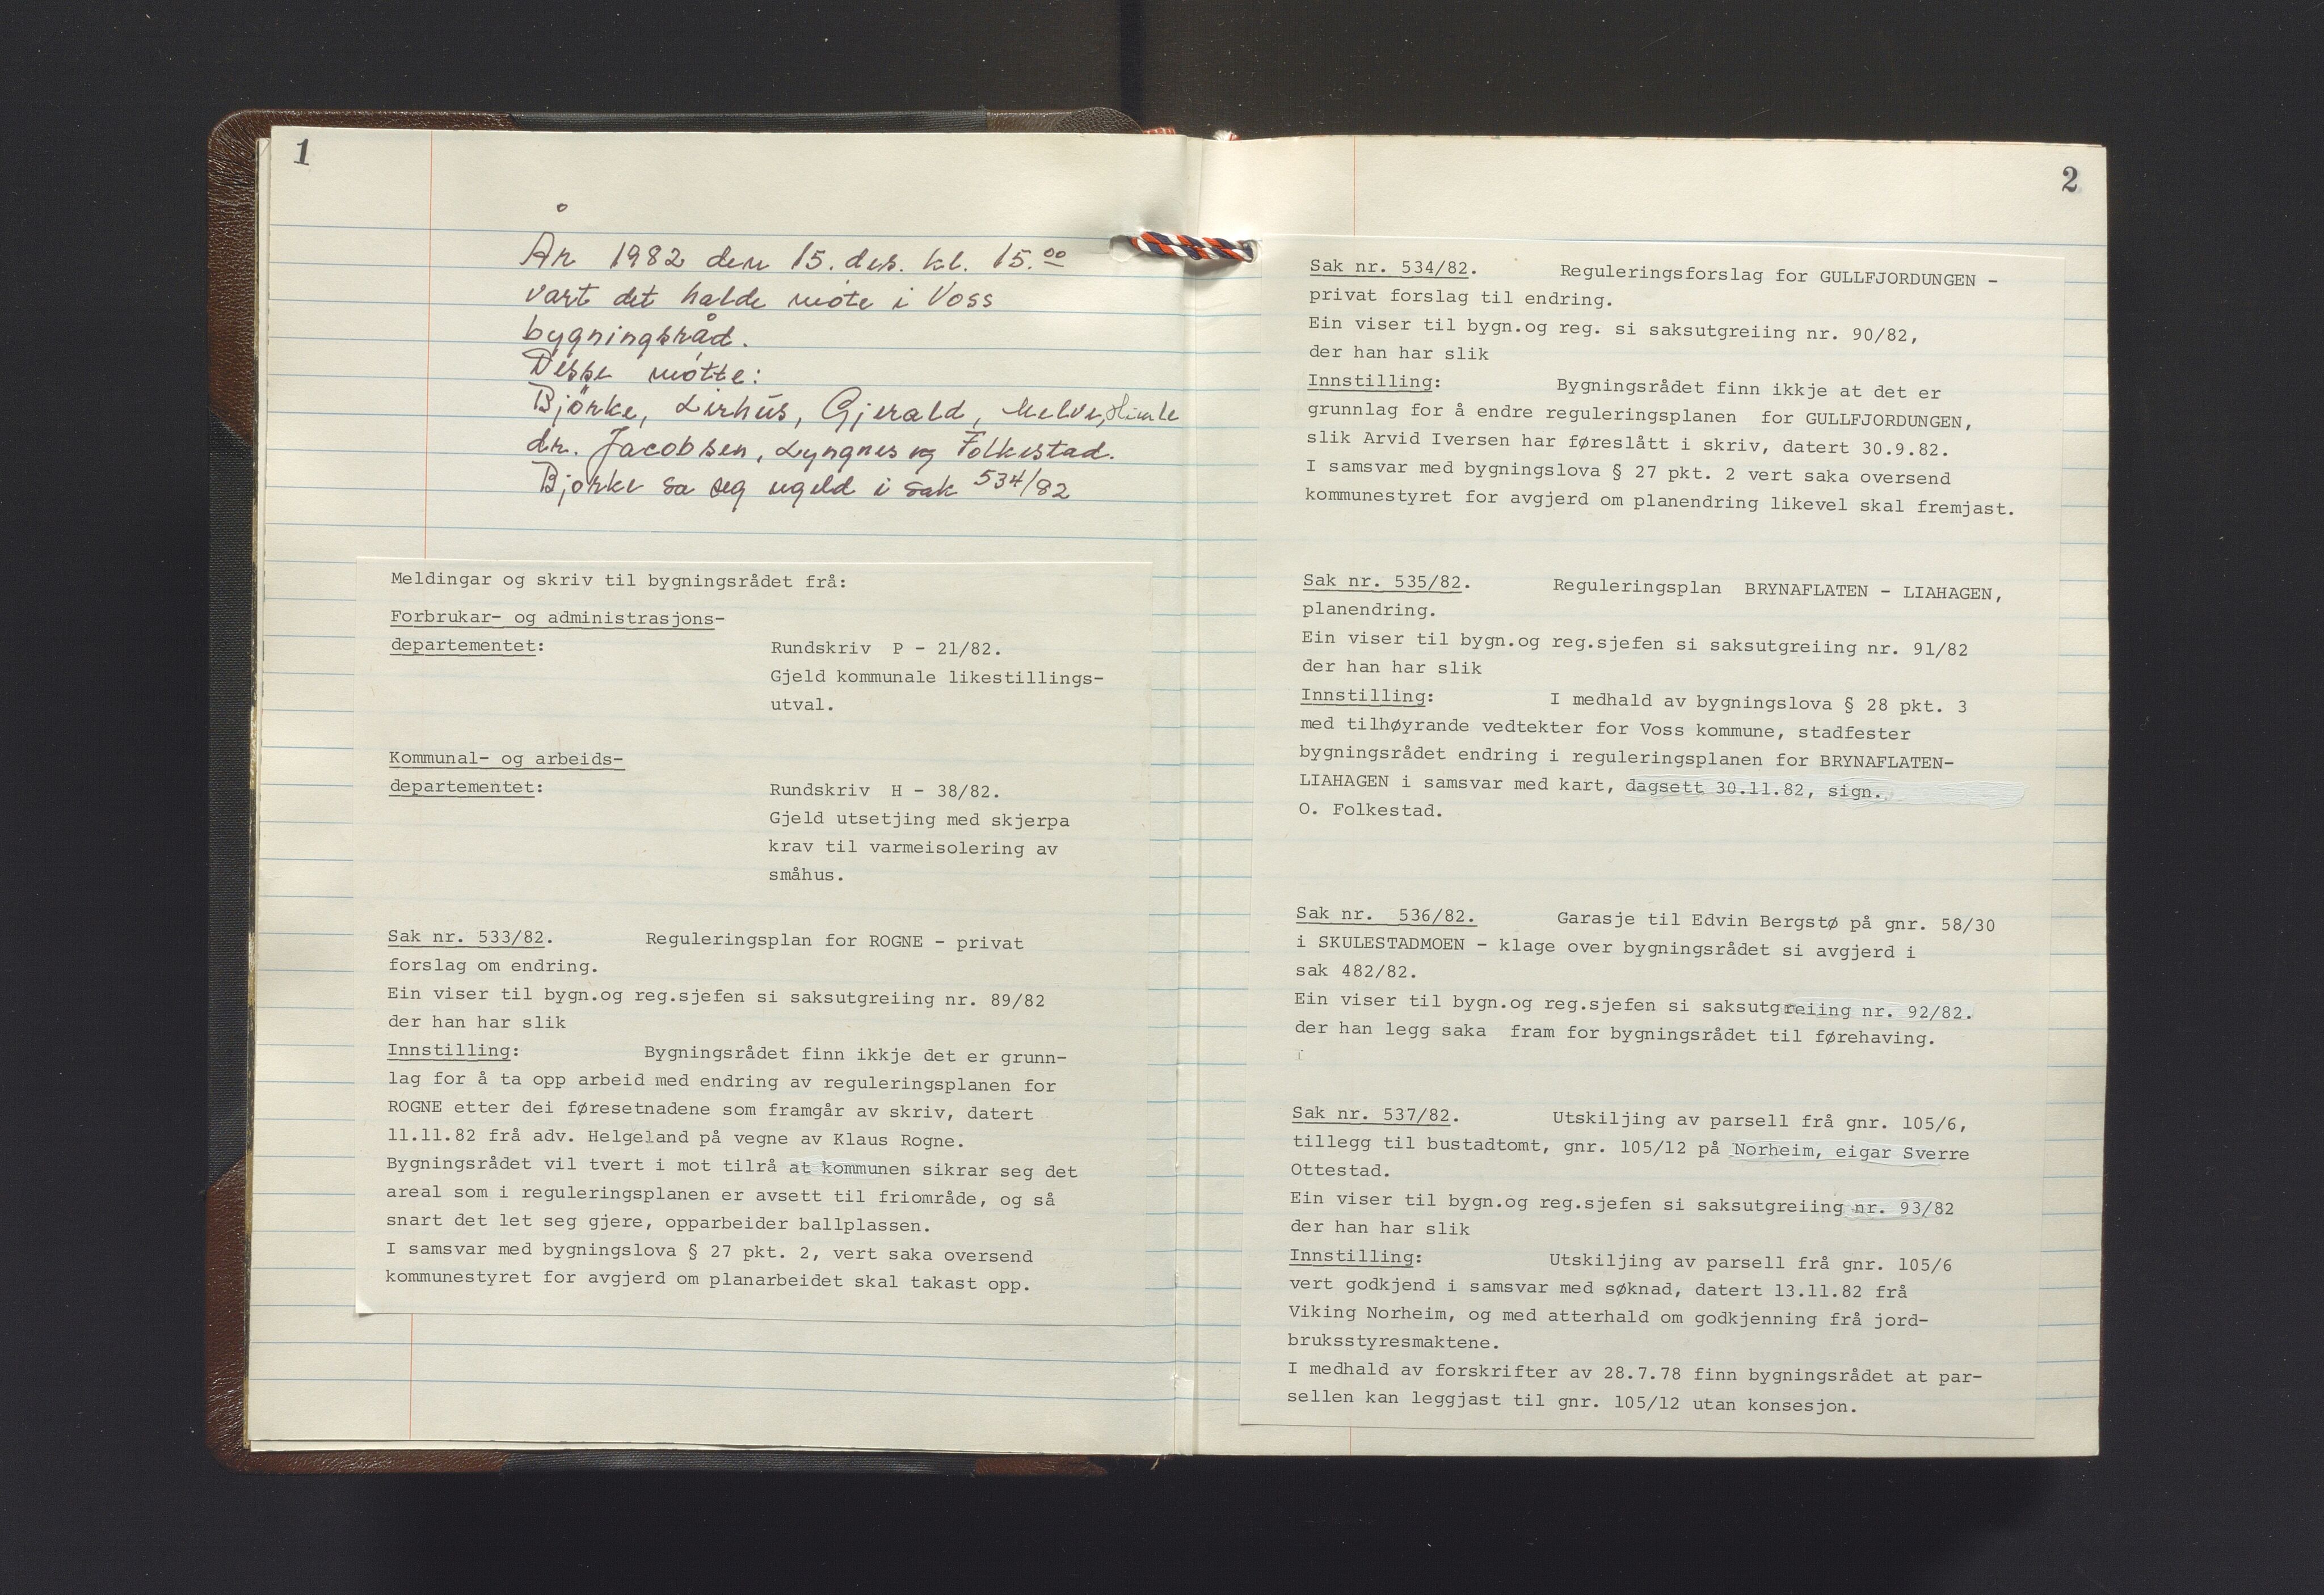 1
År 1982 den 15. des. kl. 15.00
vart det halde møte i Voss
bygningsråd.
Desse møtte:
Bjørke, Lirhus, Gjerald, Melve, Himle
dr. Jacobsen, Lyngnes og Folkestad.
Bjørke sa seg ugild i sak 534/82
Meldingar og skriv til bygningsrådet frå:
Forbrukar- og administrasjons-
departementet:
Rundskriv P - 21/82.
Gjeld kommunale likestillings-
utval.
Kommunal- og arbeids-
departementet:
Rundskriv H - 38/82.
Gjeld utsetjing med skjerpa
krav til varmeisolering av
småhus.
Sak nr. 533/82. Reguleringsplan for ROGNE - privat
forslag om endring.
Ein viser til bygn.og reg.sjefen si saksutgreiing nr. 89/82
der han har slik
Innstilling: Bygningsrådet finn ikkje det er grunn-
lag for å ta opp arbeid med endring av reguleringsplanen for
ROGNE etter dei føresetnadene som framgår av skriv, datert
11.11.82 frå adv. Helgeland på vegne av Klaus Rogne.
Bygningsrådet vil tvert i mot tilrå at kommunen sikrar seg det
areal som i reguleringsplanen er avsett til friområde, og så
snart det let seg gjere, opparbeider ballplassen.
I samsvar med bygningslova § 27 pkt. 2, vert saka oversend
kommunestyret for avgjerd om planarbeidet skal takast opp.
2
Sak nr. 534/82. Reguleringsforslag for GULLFJORDUNGEN -
privat forslag til endring.
Ein viser til bygn.og reg. si saksutgreiing nr. 90/82,
der han har slik
Innstilling: Bygningsrådet finn ikkje at det er
grunnlag for å endre reguleringsplanen for GULLFJORDUNGEN,
slik Arvid Iversen har føreslått i skriv, datert 30.9.82.
I samsvar med bygningslova § 27 pkt. 2 vert saka oversend
kommunestyret for avgjerd om planendring likevel skal fremjast.
Sak nr. 535/82. Reguleringsplan BRYNAFLATEN - LIAHAGEN,
planendring.
Ein viser til bygn.og reg.sjefen si saksutgreiing nr. 91/82
der han har slik
Innstilling: I medhald av bygningslova § 28 pkt. 3
med tilhøyrande vedtekter for Voss kommune, stadfester
bygningsrådet endring i reguleringsplanen for BRYNAFLATEN-
LIAHAGEN i samsvar med kart, dagsett 30.11.82, sign.
O. Folkestad.
Sak nr. 536/82. Garasje til Edvin Bergstø på gnr. 58/30
i SKULESTADMOEN - klage over bygningsrådet si avgjerd i
sak 482/82.
Ein viser til bygn.og reg.sjefen si saksutgreiing nr. 92/82.
der han legg saka fram for bygningsrådet til førehaving.
Sak nr. 537/82. Utskiljing av parsell frå gnr. 105/6,
tillegg til bustadtomt, gnr. 105/12 på Norheim, eigar Sverre
Ottestad.
Ein viser til bygn.og reg.sjefen si saksutgreiing nr. 93/82
der han har slik
Innstilling: Utskiljing av parsell frå gnr. 105/6
vert godkjend i samsvar med søknad, datert 13.11.82 frå
Viking Norheim, og med atterhald om godkjenning frå jord-
bruksstyresmaktene.
I medhald av forskrifter av 28.7.78 finn bygningsrådet at par-
sellen kan leggjast til gnr. 105/12 utan konsesjon.